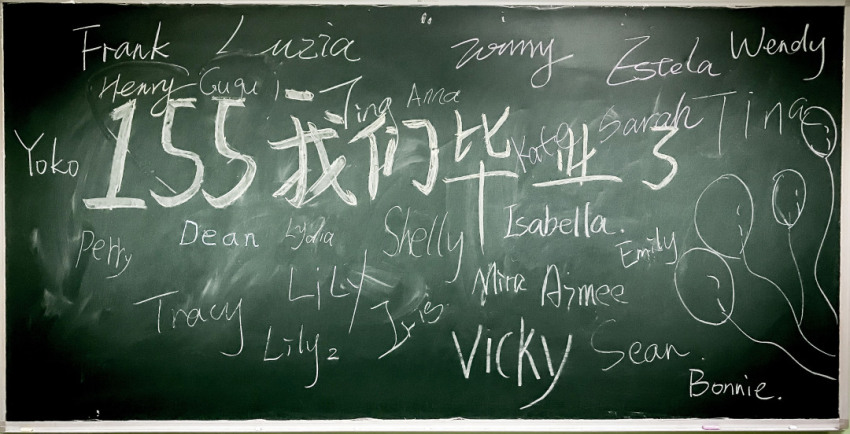 Frank Luzia winny Estela Wendy
Henry Gugu Jing Anna Sarah Tina
Yoko 155我们毕业了 Kate
Perry Dean Lydia Shelly Isabella.
Emily
Tracy LiLy Mira Aimee
Lily2 Iris Vicky Sean.
Bonnie.